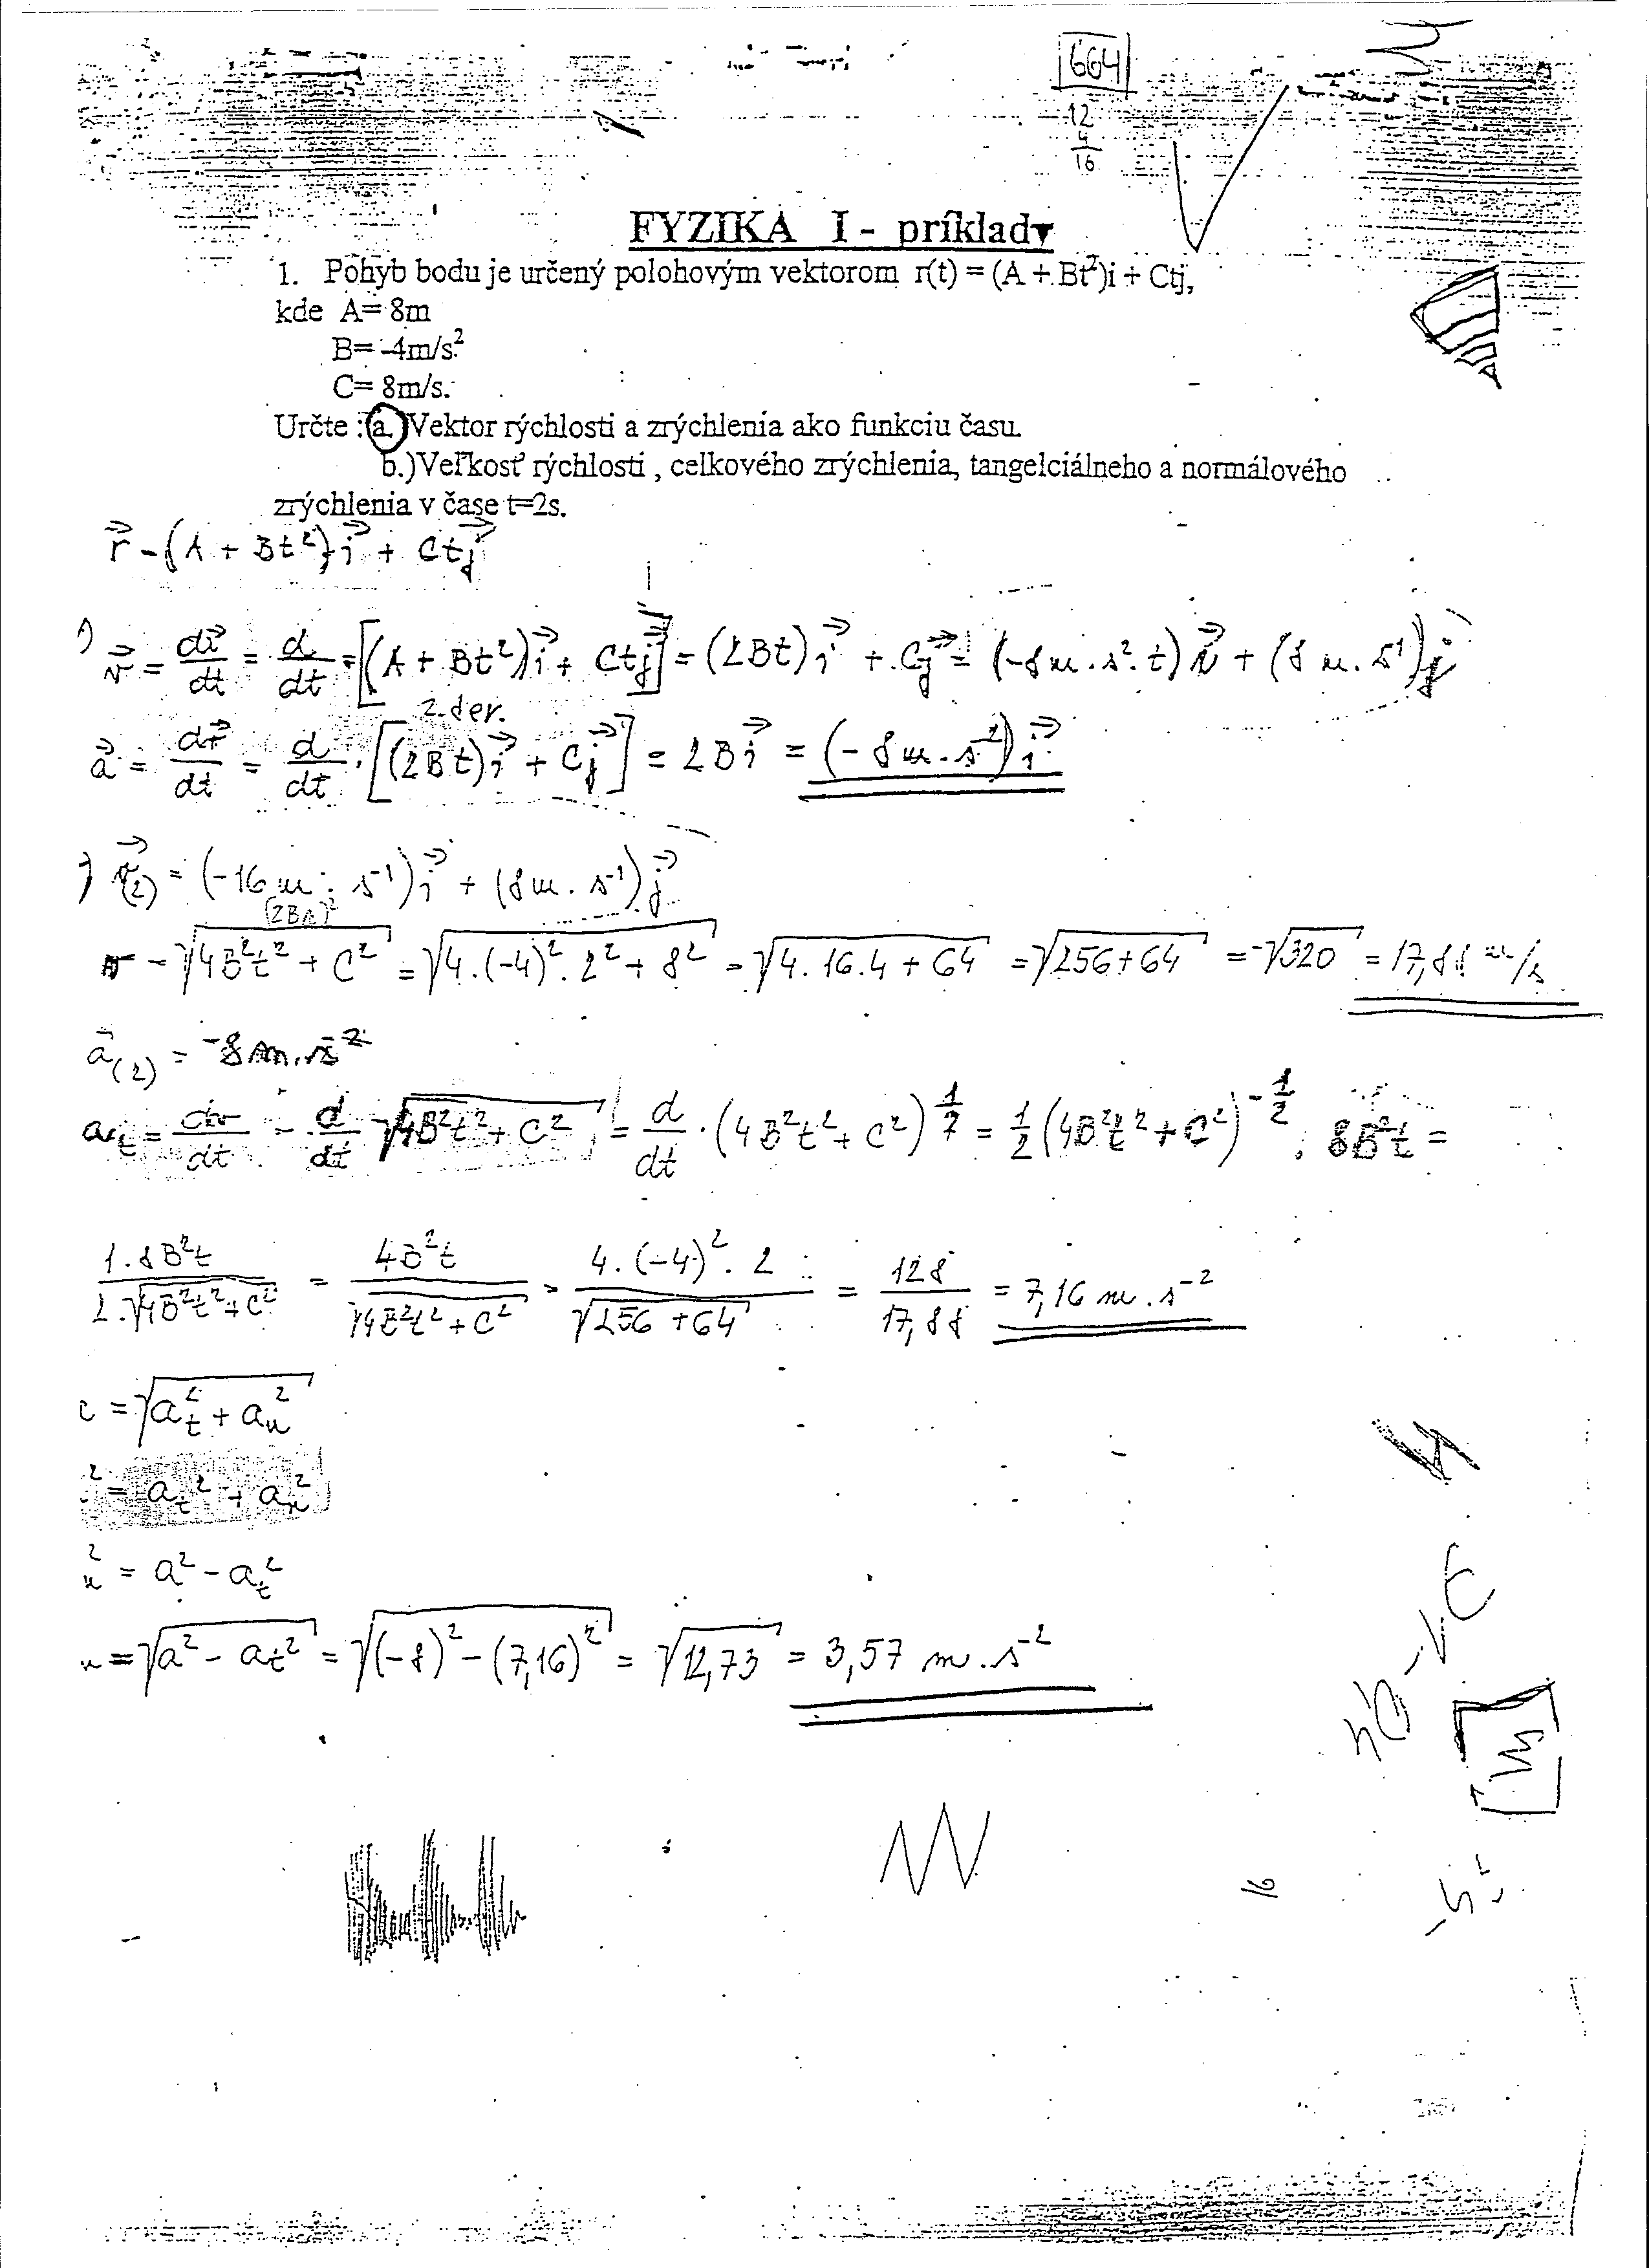 664
12
4
16
FYZIKA I - príklady
1. Pohyb bodu je určený polohovým vektorom r(t) = (A + Bt²)i + Ctj,
kde A= 8m
B= -4m/s²
C= 8m/s.
Určte : a.)Vektor rýchlosti a zrýchlenia ako funkciu času.
b.)Veľkosť rýchlosti , celkového zrýchlenia, tangelciálneho a normálového
zrýchlenia v čase t=2s.
r⃗ = (A + Bt²)i⃗ + Ctj⃗
) v⃗ = dr⃗/dt = d/dt = [(A + Bt²)i⃗ + Ctj⃗] = (2Bt)i⃗ + Cj⃗ = (-8m.s².t)i⃗ + (8m.s⁻¹)j⃗
2.der.
a⃗ = dr⃗/dt = d/dt · [(2Bt)i⃗ + Cj⃗] = 2Bi⃗ = (-8m.s⁻²)i⃗
) v⃗(2) = (-16m.s⁻¹)i⃗ + (8m.s⁻¹)j⃗
v = √(4B²t² + C²) = √(4.(-4)².2² + 8²) = √(4.16.4 + 64) = √(256+64) = √320 = 17,88 m/s
a⃗(2) = -8m.s⁻²
at = dv/dt = d/dt √(4B²t² + C²) = d/dt · (4B²t² + C²)^1/2 = 1/2 (4B²t² + C²)^-1/2 . 8B²t =
1.8B²t / 2.√(4B²t²+C²) = 4B²t / √(4B²t²+C²) = 4.(-4)².2 / √(256+64) = 128 / 17,88 = 7,16 m.s⁻²
= √(at² + an²)
² = at² + an²
n² = a² - at²
n = √(a² - at²) = √((-8)² - (7,16)²) = √12,73 = 3,57 m.s⁻²
16